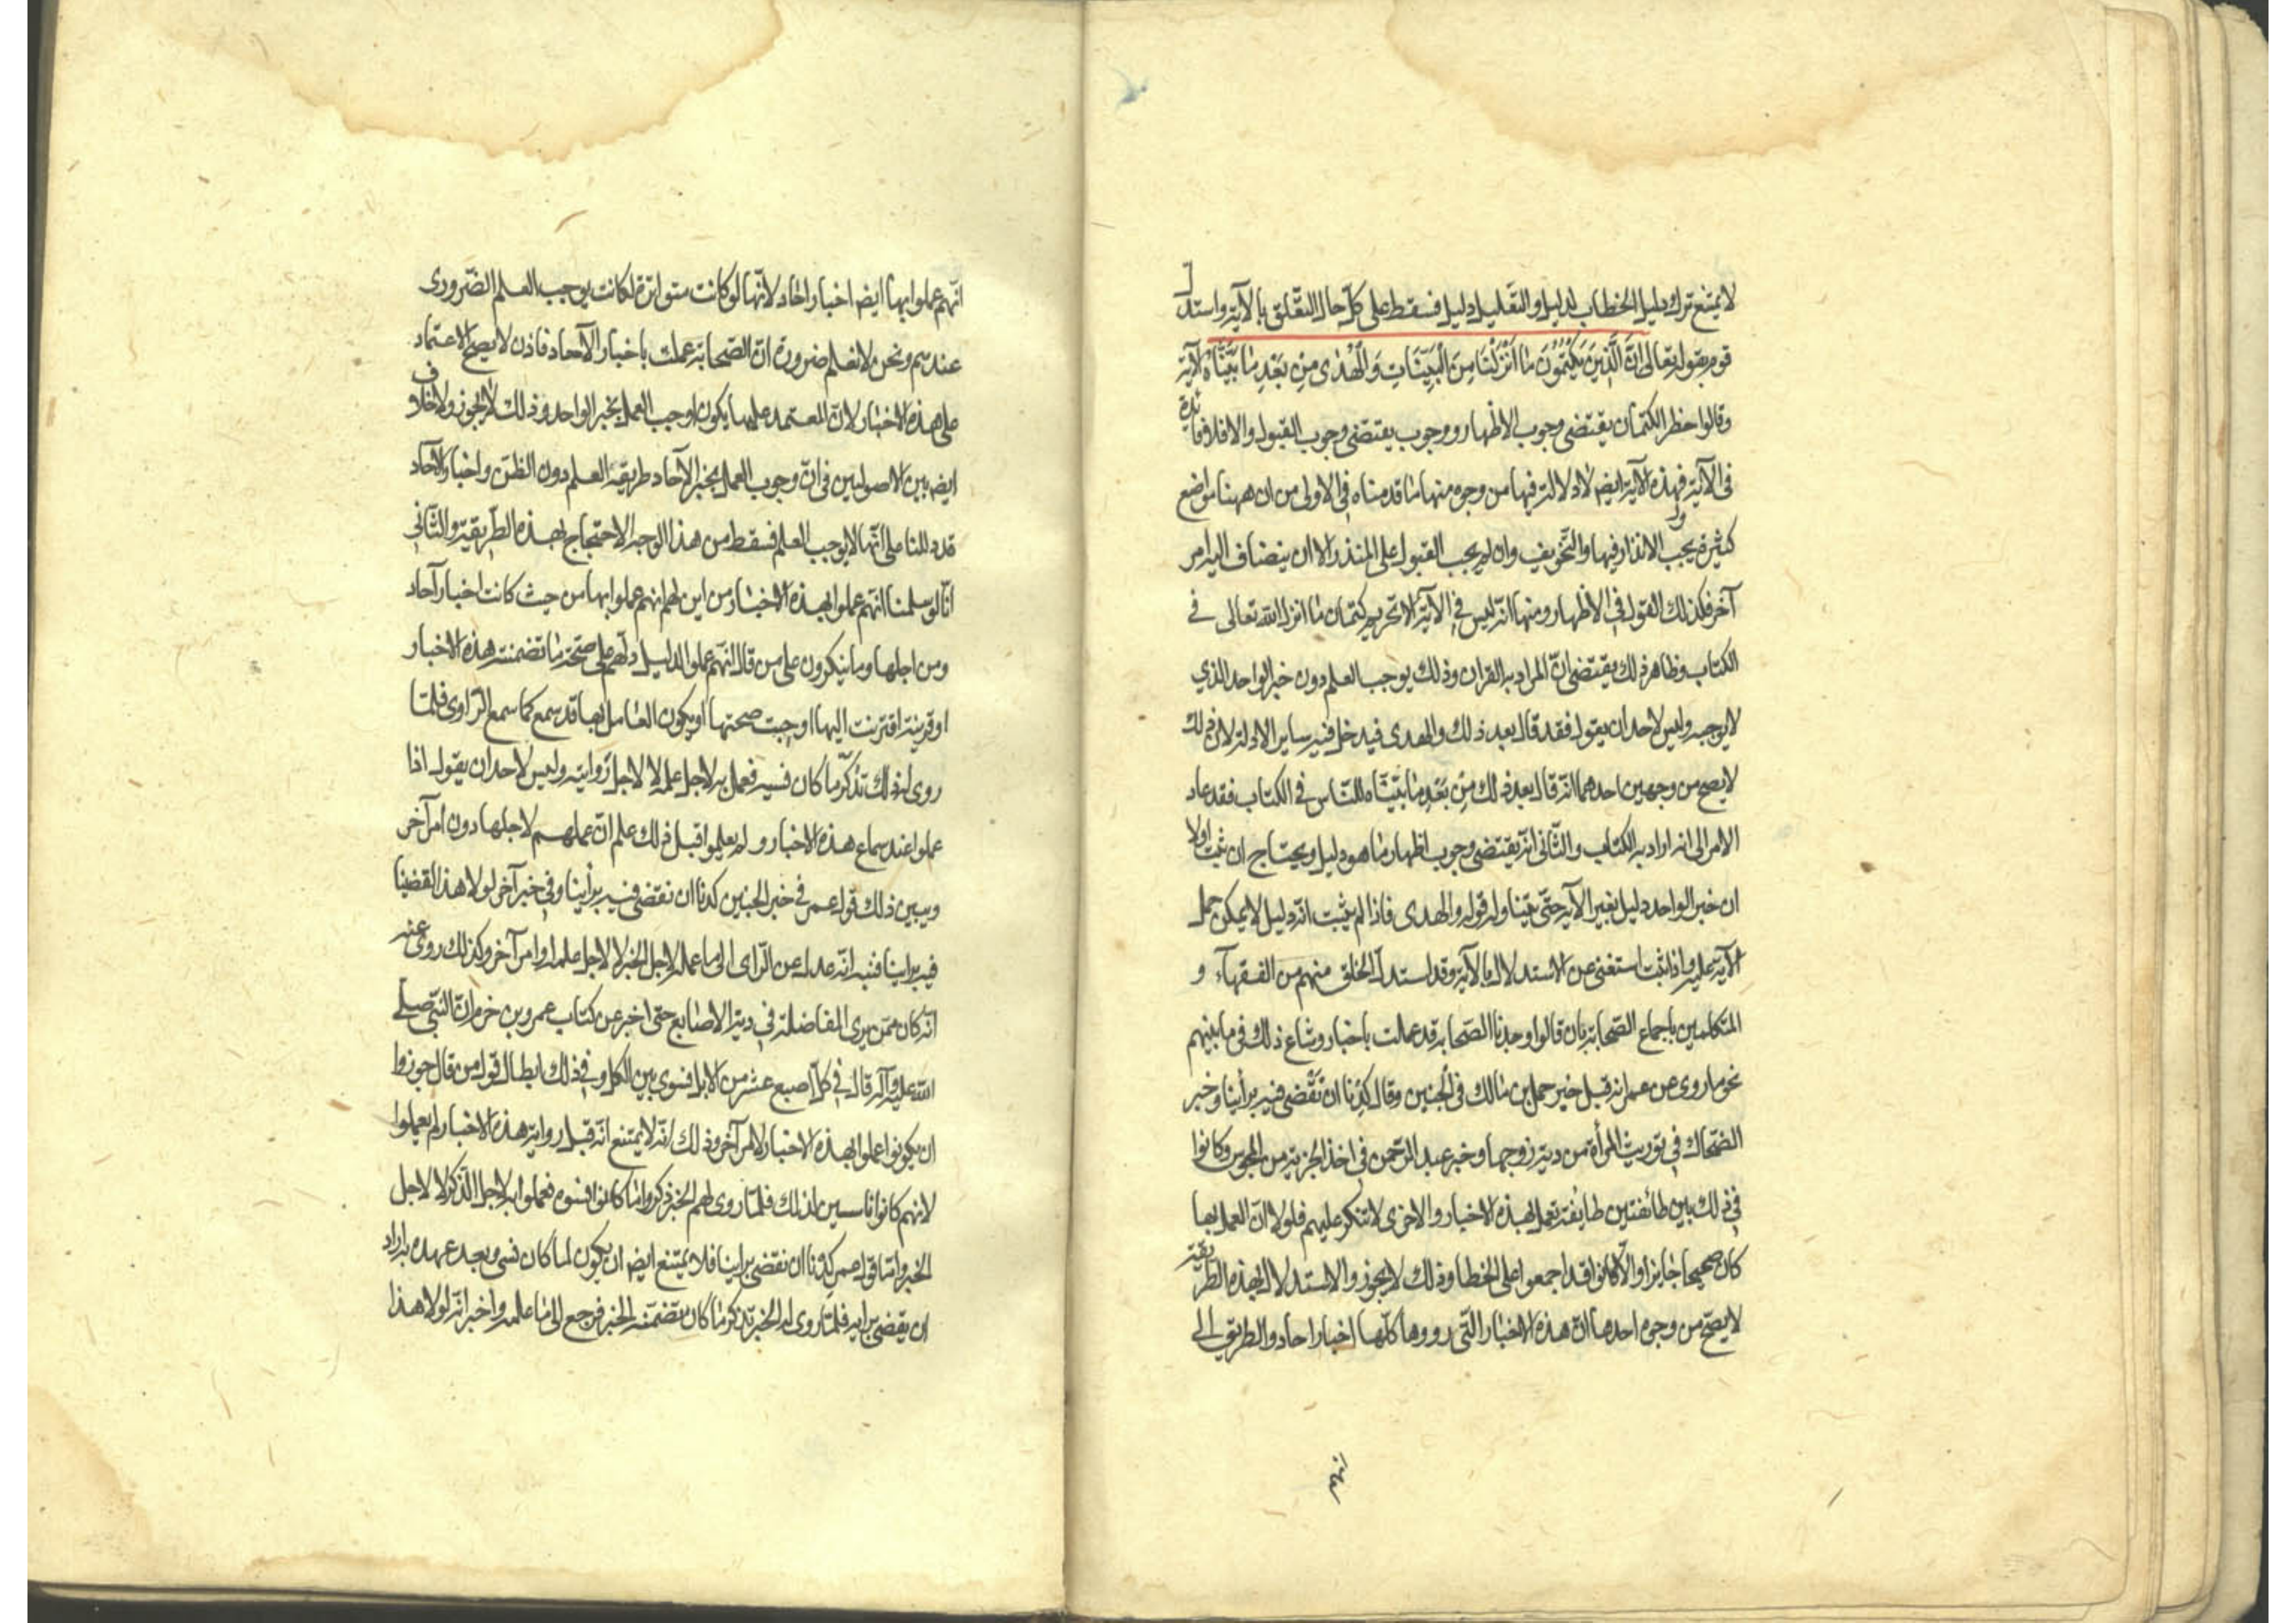 لا يمتنع ترك دليل الخطاب لدليل والتعليل دليل فسقط على كل حال التعلق بالآية واستدل
قوم بقوله تعالى انّ الَّذينَ يَكْتُمُونَ ما اَنْزَلْنَا مِنَ الْبَيِّنَاتِ وَالْهُدٰى مِنْ بَعْدِ مٰا بَيَّنَّاهُ الآية
وقالوا حظر الكتمان يقتضى وجوب الاظهار ووجوب يقتضى وجوب القبول والا فلا فائدة
فى الآية فهذه الآية ايضا لا دلالة فيها من وجوه منها ما قدمناه فى الاولى من ان ههنا مواضع
كثيرة يجب الانذار فيها والتخويف وان لم يجب القبول على المنذر الا ان ينضاف اليه امر
آخر فكذلك القول فى الاظهار ومنها انه ليس فى الآية الا تحريم كتمان ما انزل الله تعالى فى
الكتاب وظاهر ذلك يقتضى انّ المراد به القران وذلك يوجب العلم دون خبر الواحد الذي
لا يوجبه وليس لاحد ان يقول فقد قال بعد ذلك والهدى فيدخل فيه ساير الادلة لان ذلك
لا يصح من وجهين احدهما انه قال بعد ذلك مِنْ بَعْدِ مٰا بَيَّنَّاه للنّاس فى الكتاب فقد عاد
الامر الى انه اراد به الكتاب والثّانى انه يقتضى وجوب اظهار ما هو دليل ويحتاج ان يثبت اولا
ان خبر الواحد دليل بغير الآية حتّى يتناوله قوله والهدى فاذا لم يثبت انه دليل لا يمكن حمل
الآية عليه واذا ثبت استغنى عن الاستدلال بالآية وقد استدل الخلق منهم من الفقهاء و
المتكلمين باجماع الصّحابة بان قالوا وجدنا الصّحابة قد عملت باخبار وشاع ذلك فى ما بينهم
نحو ما روى عن عمر انه قبل خبر حمل بن مالك فى الجنين وقال كدنا ان نقضى فيه برأينا وخبر
الضّحاك فى توريث المرأة من دية زوجها وخبر عبد الرّحمن فى اخذ الجزية من المجوس وكانوا
فى ذلك بين طائفتين طايفة تعمل بهذه الاخبار والاخرى لا تنكر عليهم فلولا انّ العمل بها
كان صحيحا جايزا والّا كانوا قد اجمعوا على الخطا وذلك لا يجوز والاستدلال بهذه الطريقة
لا يصحّ من وجوه احدها انّ هذه الاخبار التّى رووها كلّها اخبار احاد والطريق الى
انهم
انّهم عملوا بها ايض اخبار احاد لانّها لو كانت متواترة لكانت يوجب العلم الضّرورى
عندهم ونحن لا نعلم ضرورة انّ الصّحابة عملت باخبار الآحاد فاذن لا يصح الاعتماد
على هذه الاخبار لانّ المعتمد عليها يكون اوجب العمل بخبر الواحد وذلك لا يجوز ولا خلاف
ايض بين الاصوليين فى انّ وجوب العمل بخبر الآحاد طريقه العلم دون الظنّ واخبار الآحاد
قد دللنا على انّها لا يوجب العلم فسقط من هذا الوجه الاحتجاج بهذه الطريقة والثّانى
انّا لو سلمنا انّهم عملوا بهذه الاخبار من اين لهم انهم عملوا بها من حيث كانت اخبار آحاد
ومن اجلها وما ينكرون على من قال انّهم عملوا لدليل دلّهم على صحّة ما تضمنته هذه الاخبار
او قرينة اقترنت اليها اوجبت صحتها او يكون العامل بها قد سمع كما سمع الرّاوى فلمّا
روى له ذلك تذكّر ما كان نسيه فعمل به لاجل علمه لا لاجل روايته وليس لاحد ان يقول اذا
عملوا عند سماع هذه الاخبار ولم يعلموا قبل ذلك علم انّ عملهم لاجلها دون امر آخر
ويبين ذلك قول عمر فى خبر الجنين كدنا ان نقضى فيه برأينا وفى خبر آخر لولا هذا لقضينا
فيه براينا فنبه انّه عدل عن الرّاى الى ما عمله لاجل الخبر لا لاجل علمه او امر آخر وكذلك روى عنه
انّه كان ممّن يرى المفاضلة فى دية الاصابع حتى اخبر عن كتاب عمرو بن حزم انّ النّبى صلّى
الله عليه وآله قال فى كلّ اصبع عشر من الابل فسوى بين الكل وفى ذلك ابطال قول من قال جوزوا
ان يكونوا عملوا بهذه الاخبار لامر آخر وذلك انّه لا يمتنع انّه قبل رواية هذه الاخبار لم يعملوا
لانهم كانوا ناسين لذلك فلمّا روى لهم الخبر ذكروا ما كانوا نسوه فعملوا به لاجل الذّكر لا لاجل
الخبر وامّا قول عمر كدنا ان نقضى برأينا فلا يمتنع ايض ان يكون لما كان نسى وبعد عهده به اراد
ان يقضى برايه فلمّا روى له الخبر تذكر ما كان تضمّنه الخبر فرجع الى ما علمه واخبر انّه لولا هذا